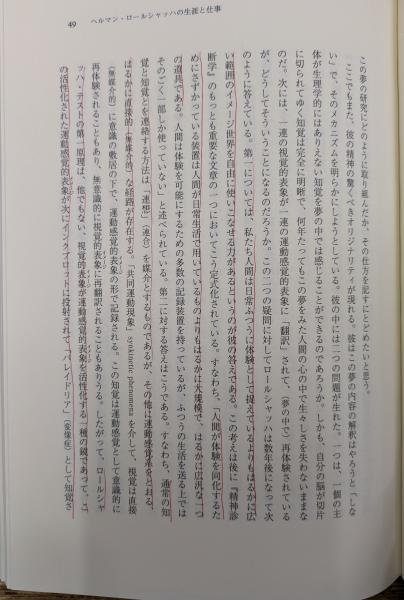 ヘルマン・ロールシャッハの生涯と仕事
49
この夢の研究にどのように取り組んだか、その仕方を記すにとどめたいと思う。
ここでもまた、彼の精神の驚くべきオリジナリティが現れる。彼はこの夢の内容の解釈はやろうと「しな
い」で、そのメカニズムを明らかにしようとしている。彼の中には二つの問題が生れた。一つは、一個の主
体が生理学的にはありえない知覚を夢の中では感じることができるのであろうか、しかも、自分の脳が切片
に切られてゆく知覚は完全に明晰で、何年たってもこの夢をみた人間の心の中で生々しさを失わないままな
のだ。次には、一連の視覚的表象が一連の運動感覚的表象に「翻訳」されて、(夢の中で)再体験されている
が、どうしてそういうことになるのだろうか。この二つの疑問に対してロールシャッハは数年後になって次
のように答えている。第一については、私たち人間は日常ふつうに体験として捉えているよりもはるかに広
い範囲のイメージ世界を自由に使いこなせる力があるというのが彼の答えである。この考えは後に『精神診
断学』のもっとも重要な文章の一つにおいてこう定式化されている。すなわち、「人間が体験を同化するた
めにさずかっている装置は人間が日常生活で用いているものよりもはるかに大規模で、はるかに広汎な一つ
の道具である。人間は体験を可能にするための多数の記録装置を持っているが、ふつうの生活を送る上では
そのごく一部しか使っていない」と述べられている。第二に対する答えはこうである。すなわち、通常の知
覚と知覚とを連絡する方法は「連想」(連合)を媒介とするものであるが、その他に運動感覚系をとおる、
はるかに直接的(無媒介的)な経路が存在する。「共同運動現象」synkinetic phenomena を介して、視覚は直接
(無媒介的)に意識の敷居の下で、運動感覚的表象の形で記録される。この知覚は運動感覚として意識的に
再体験されることもあり、無意識的に視覚的表象に再翻訳されることもありうる。したがって、ロールシャ
ッハ・テストの第一原理は、他でもない、視覚的表象が運動感覚的表象を活性化する一種の鏡であって、こ
の活性化された運動感覚的表象が次にインクブロットに投射されて「パレイドリア」(変像症)として知覚さ